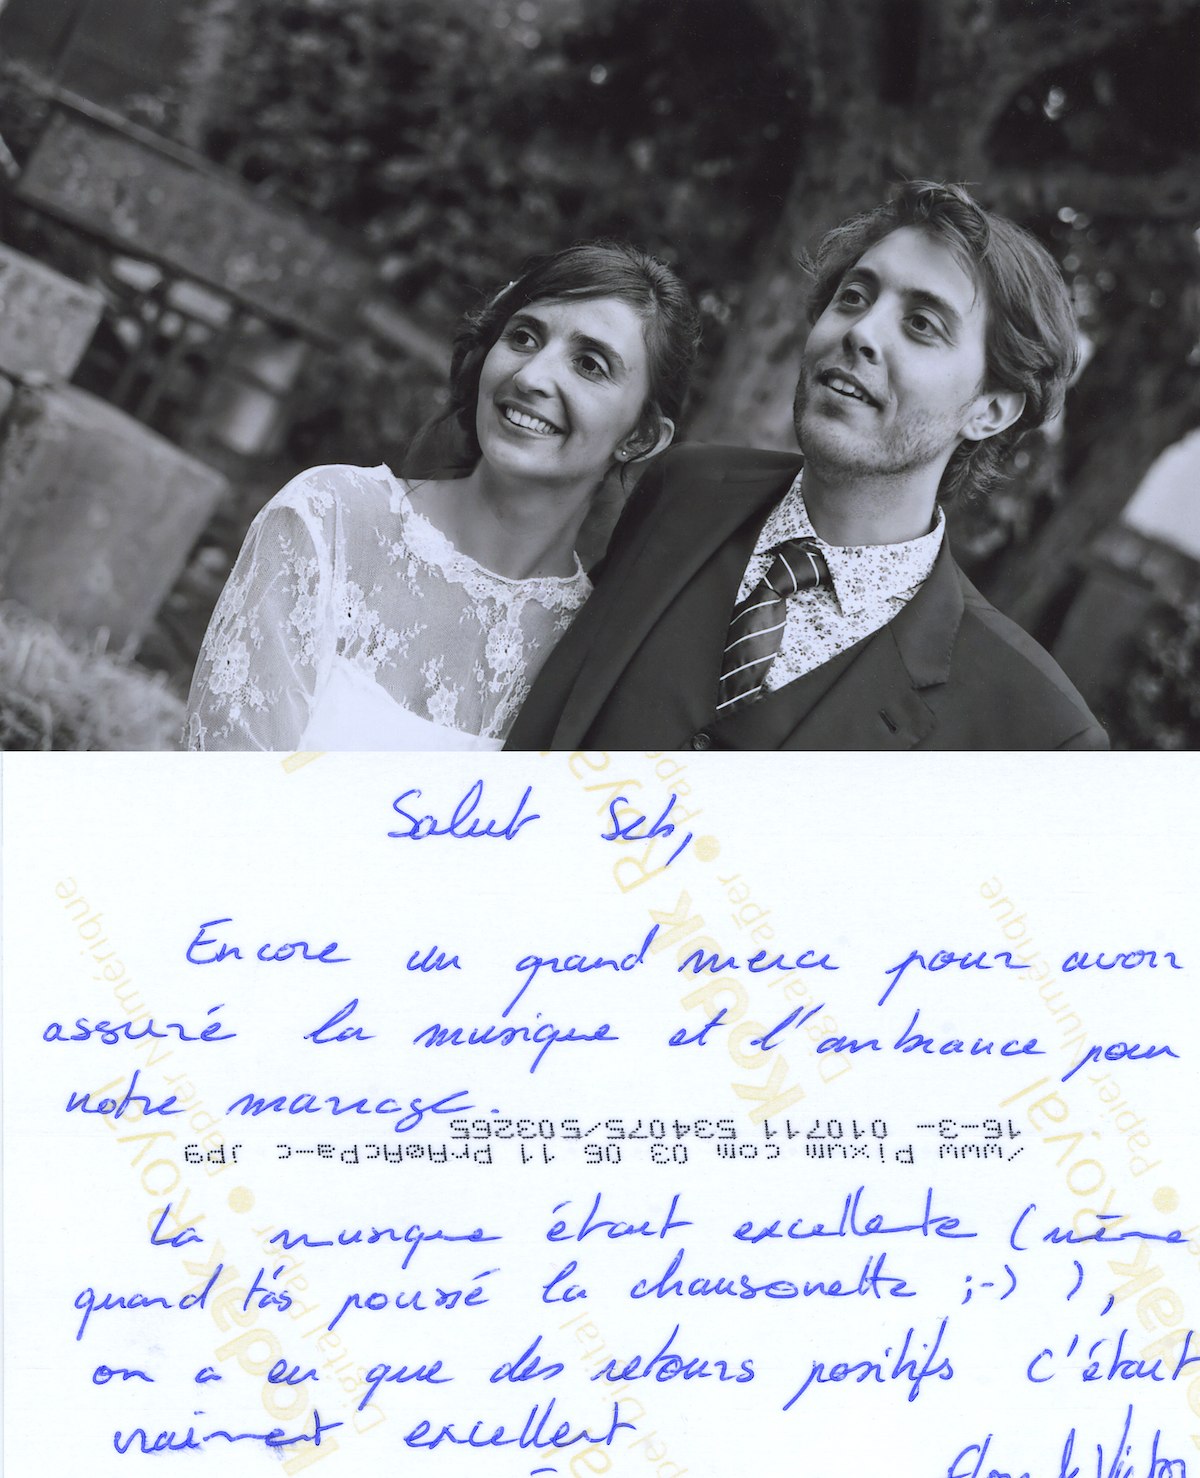 Salut Seb,
Encore un grand merci pour avoir
assuré la musique et l'ambiance pour
notre mariage.
16-3- 010711 534075/503265
/www Pixum com 03 06 11
La musique était excellente (même
quand t'as poussé la chansonette ;-) ),
on a eu que des retours positifs C'était
vraiment excellent
Kodak Royal
Digital Paper
Papier Numérique